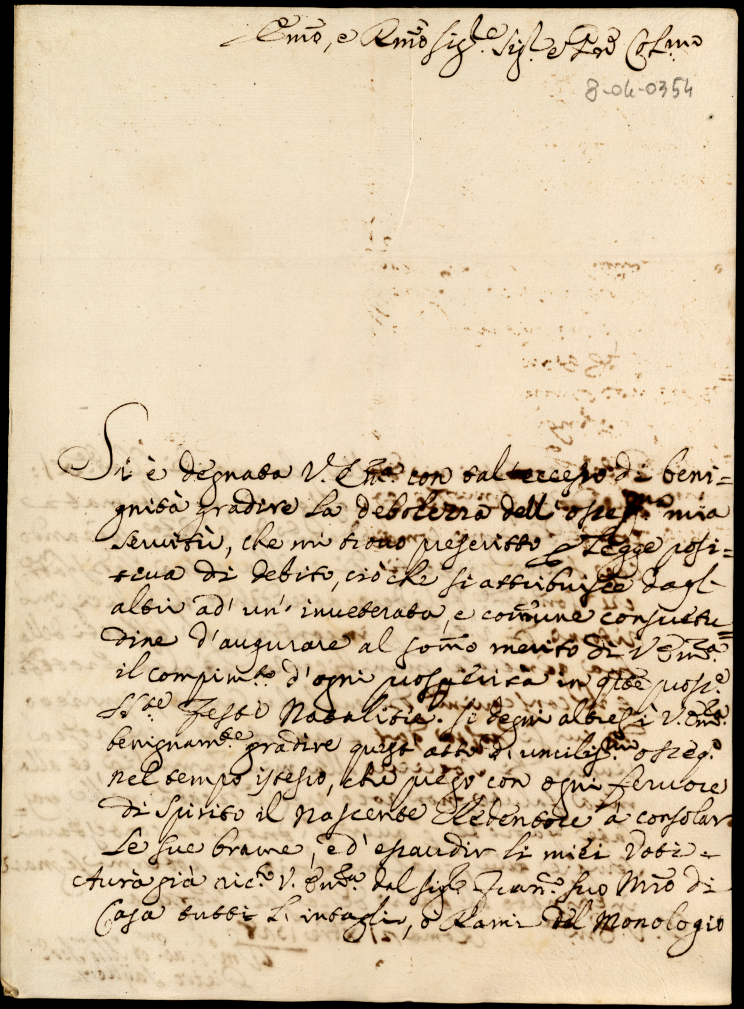 Emo, e Rmo Sigre. Sigr. e Pred Colmo
8-04-0354
Si è degnata V. Emza. con tal eccesso di beni=
gnità gradire la debolezza dell' osseqma mia
servitù, che mi trovo prescritto p Legge posi=
tiva di debito, ciò che si attribuisce dagl
altri ad' un' inveterata, e comune consuetu=
dine d'augurare al somo merito di V. Emza.
il compimto. d'ogni prosperità in qste prose.
Ste Feste Natalitie. Si degni altresì V. Emza
benignamte gradire quest atto di umilissmo osseqo.
nel tempo istesso, che prego con ogni fervore
di Spirito il Nascente Redentore à consolar
le sue brame, ed' esaudir li miei voti.
Avrà già ricto. V. Emza. dal sigre Franco. suo Mro di
Casa tutti l'intagli, o Rami del Monologio